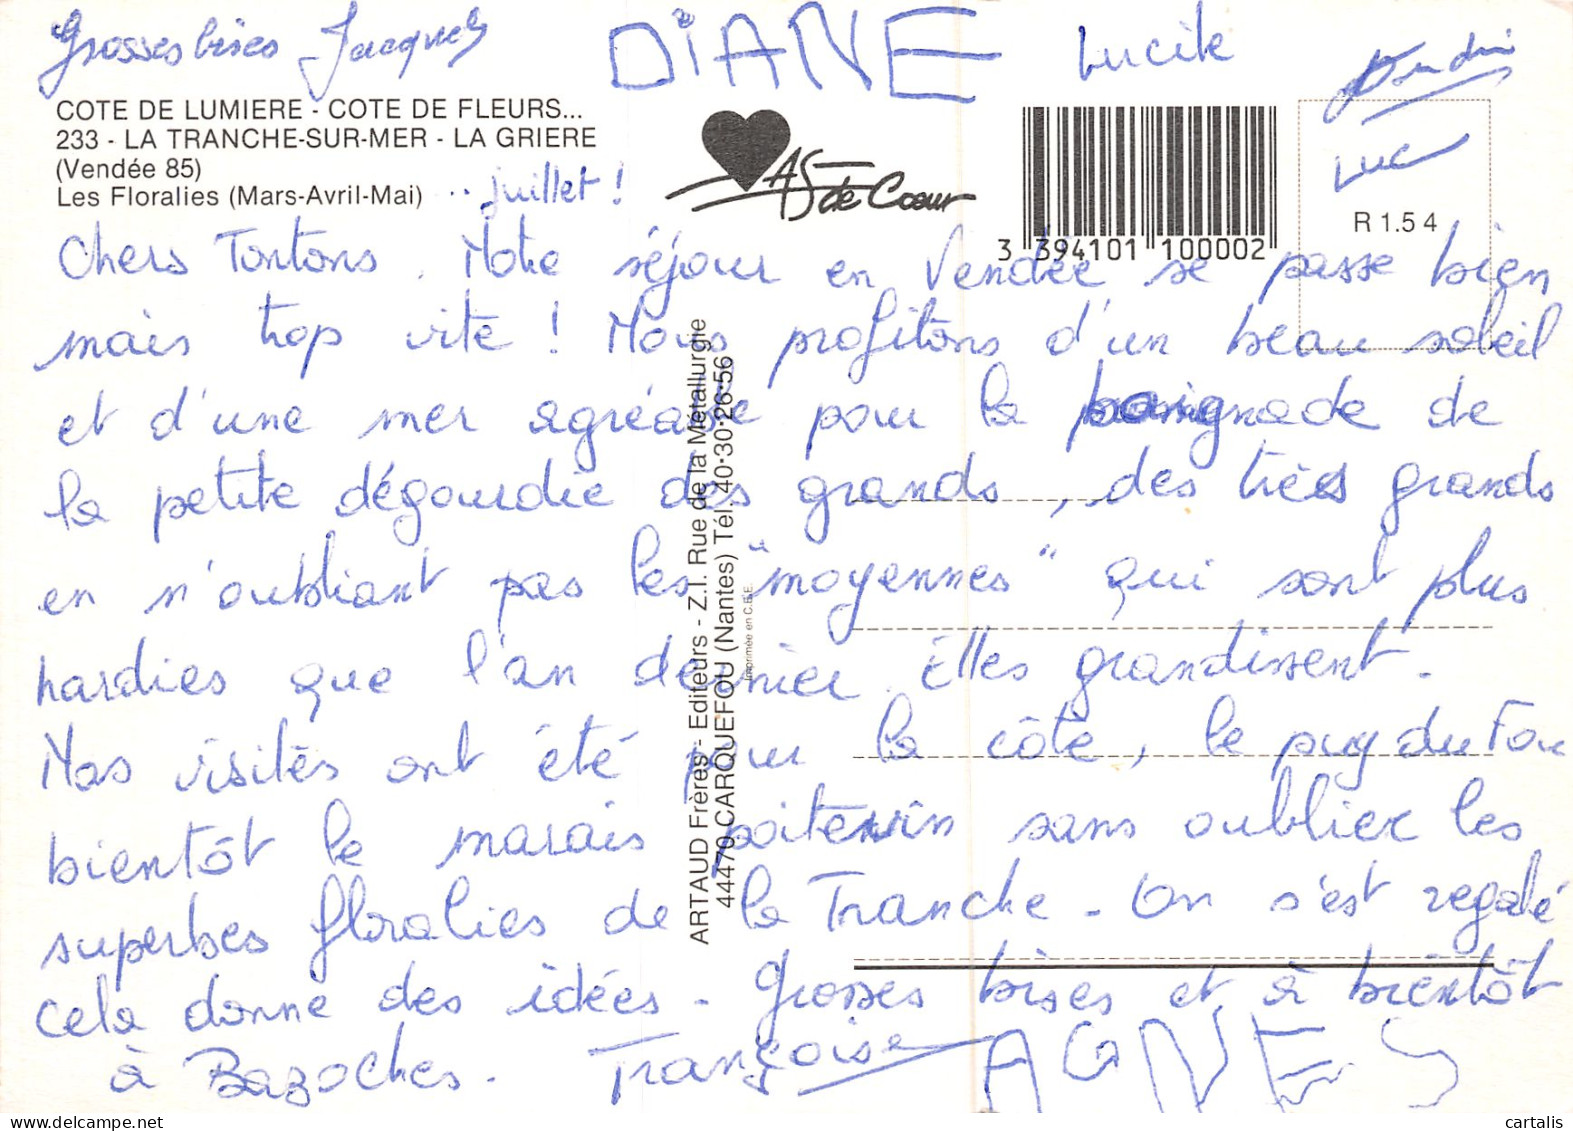 Grosses bises Jacques DIANE Lucile
LUC
COTE DE LUMIERE - COTE DE FLEURS...
233 - LA TRANCHE-SUR-MER - LA GRIERE
(Vendée 85)
Les Floralies (Mars-Avril-Mai) .. juillet !
AS de Cœur
3 394101 100002
R 1.54
Chers Tontons. Notre séjour en Vendée se passe bien
mais trop vite ! Nous profitons d'un beau soleil
et d'une mer agréable pour la baignade de
la petite dégourdie des grands, des très grands
en n'oubliant pas les "moyennes" qui sont plus
hardies que l'an dernier. Elles grandissent.
Nos visites ont été pour la côte, le puy du Fou
bientôt le marais poitevin sans oublier les
superbes floralies de la Tranche - On s'est regalé
cela donne des idées - Grosses bises et à bientôt
à Bazoches. Françoise AGNES
ARTAUD Frères - Editeurs - Z.I. Rue de la Métallurgie
44470 CARQUEFOU (Nantes) Tél. 40-30-26-56
Imprimée en C.E.E.
cartalis